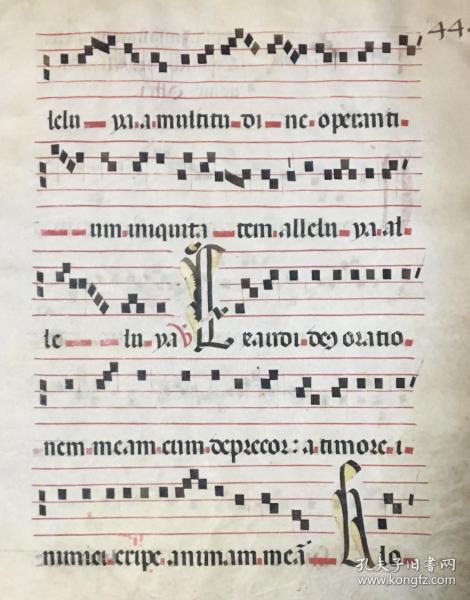 44.
lelu ya.a.multitu di ne operanti
um iniquita tem.allelu ya.al
le lu ya ℣ Exaudi deꝰ oratio
nem meam cum deprecor: a timore.i
nimici eripe.animam.meā Glo
孔夫子旧书网
www.kongfz.com